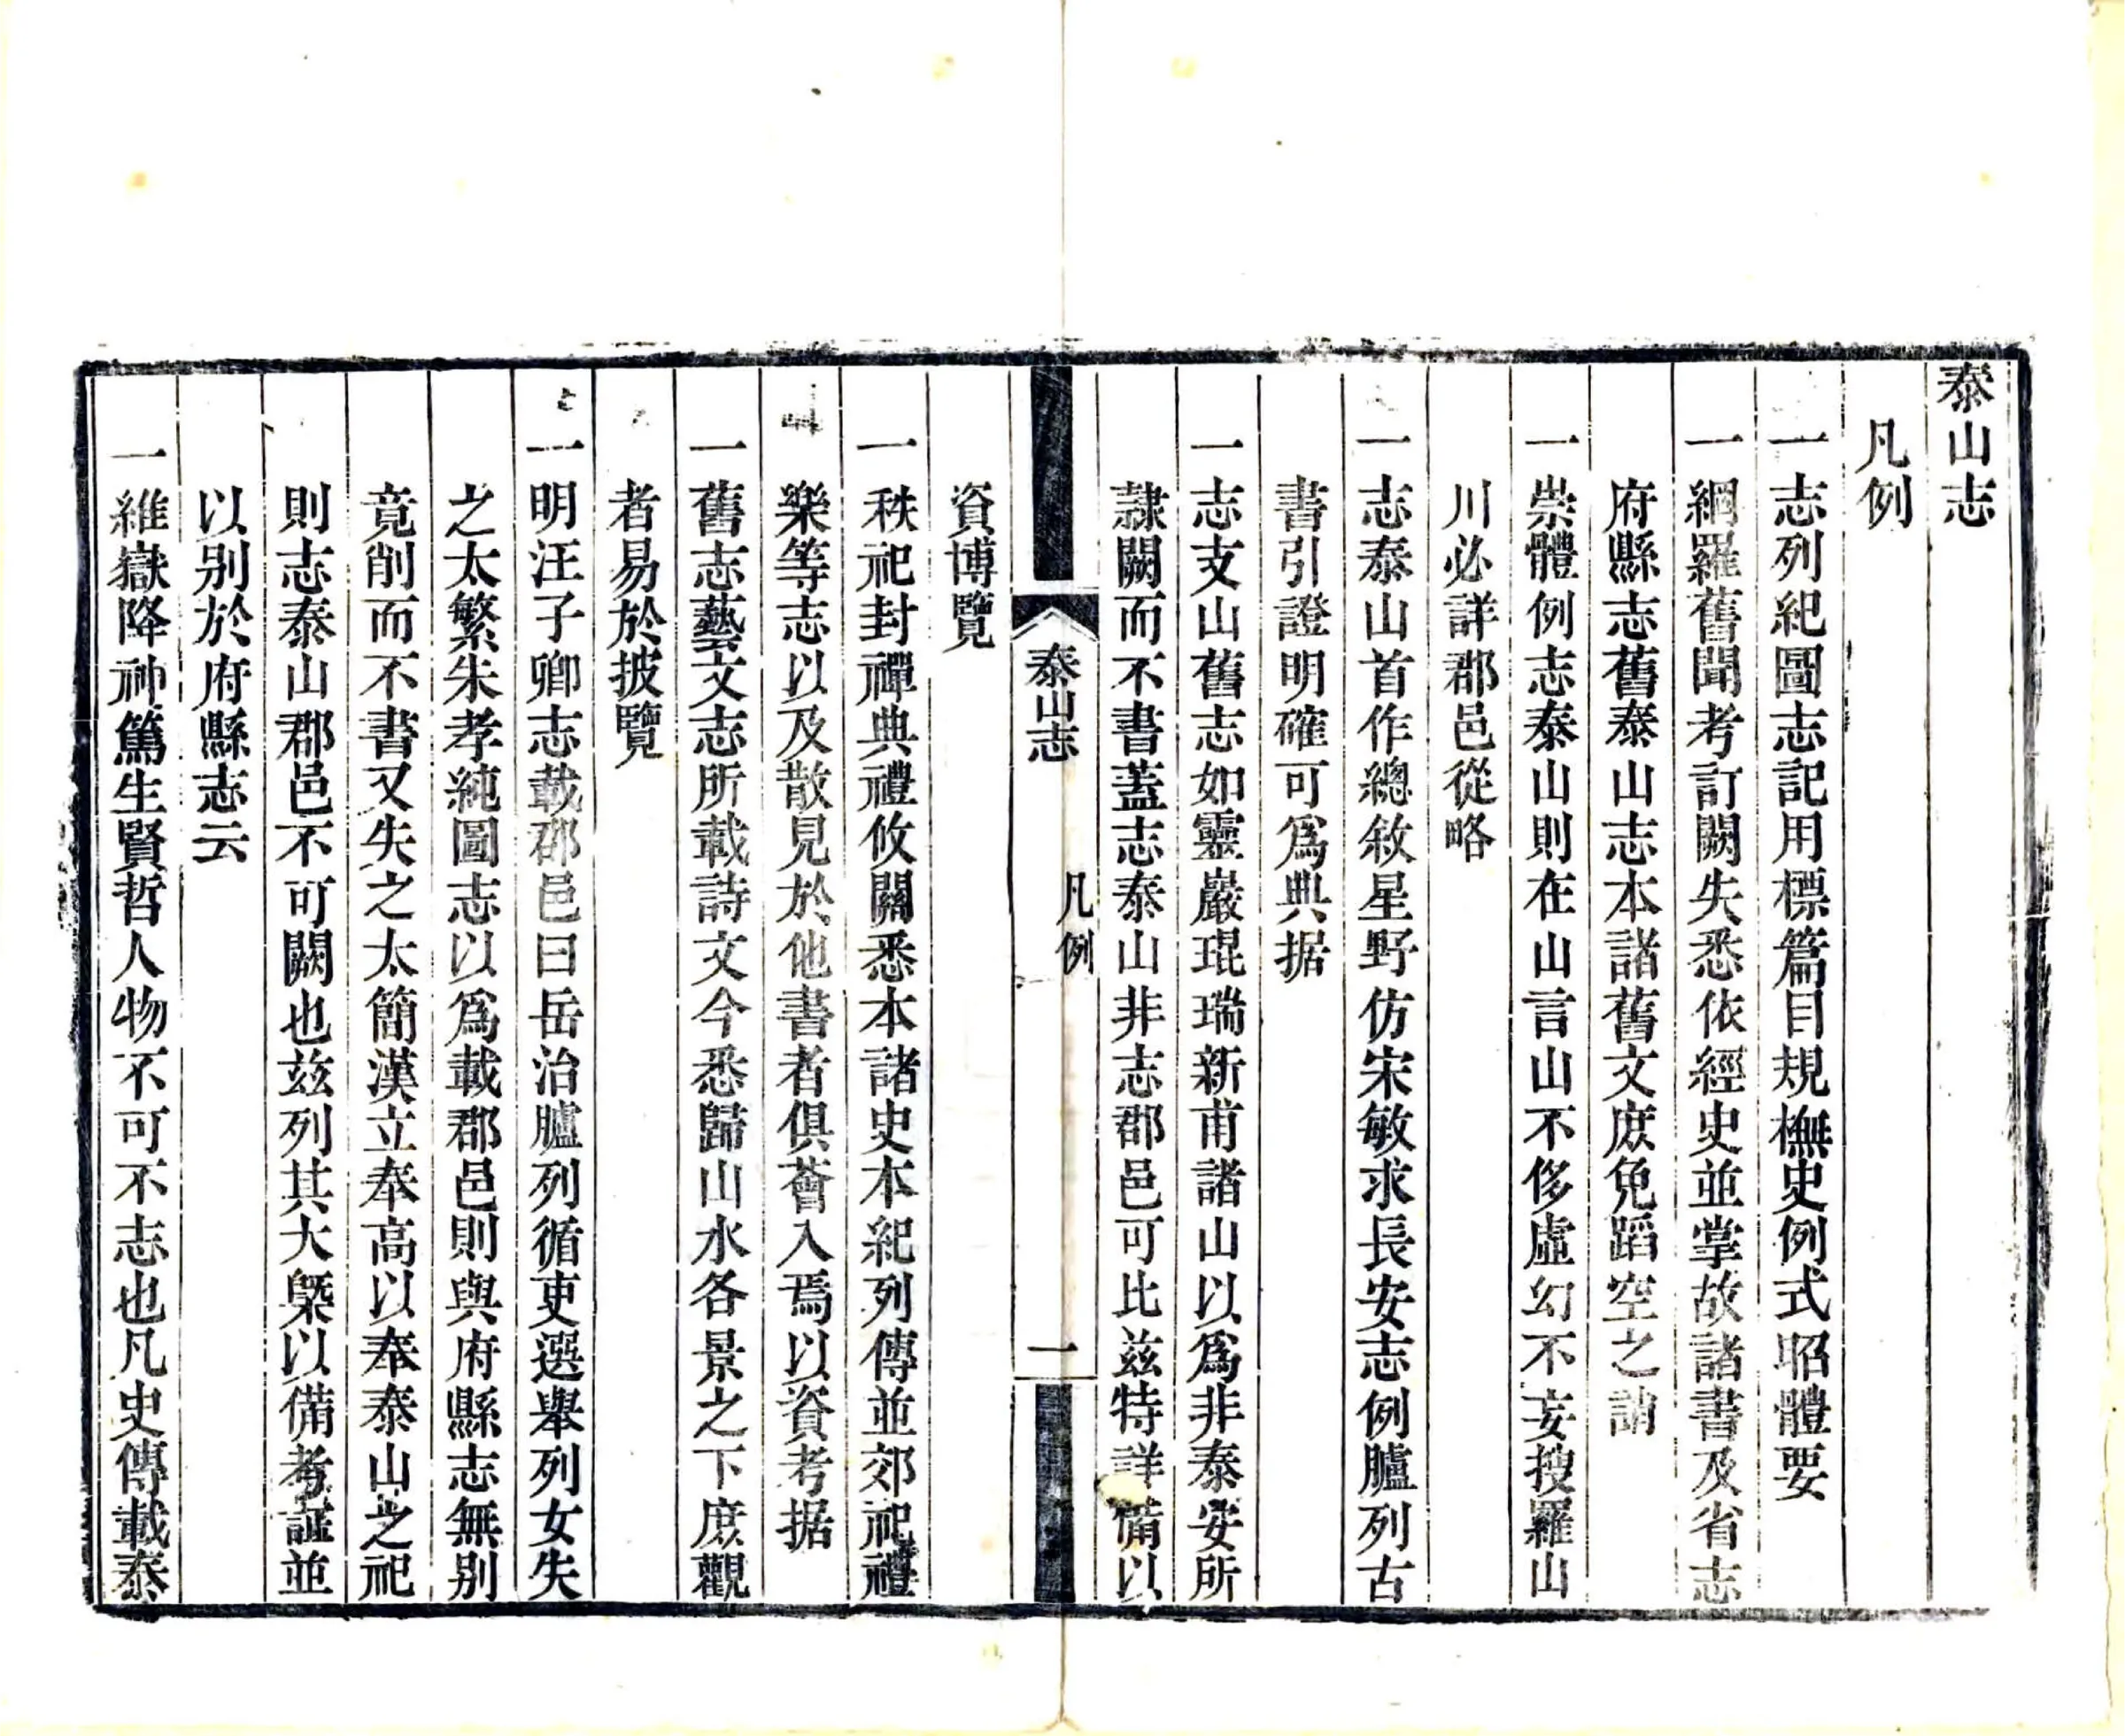 泰山志
凡例
一志列紀圖志記用標篇目規橅史例式昭體要
一網羅舊聞考訂闕失悉依經史並掌故諸書及省志
府縣志舊泰山志本諸舊文庶免蹈空之誚
一崇體例志泰山則在山言山不侈虛幻不妄搜羅山
川必詳郡邑從略
一志泰山首作總敘星野仿宋敏求長安志例臚列古
書引證明確可爲典据
一志支山舊志如靈巖琨瑞新甫諸山以爲非泰安所
隸闕而不書蓋志泰山非志郡邑可比兹特詳備以
泰山志
凡例
一
資博覽
一秩祀封禪典禮攸關悉本諸史本紀列傳並郊祀禮
樂等志以及散見於他書者俱薈入焉以資考据
一舊志藝文志所載詩文今悉歸山水各景之下庶觀
者易於披覽
一明汪子卿志載郡邑曰岳治臚列循吏選舉列女失
之太繁朱孝純圖志以爲載郡邑則與府縣志無别
竟削而不書又失之太簡漢立奉高以奉泰山之祀
則志泰山郡邑不可闕也兹列其大槩以備考證並
以别於府縣志云
一維嶽降神篤生賢哲人物不可不志也凡史傳載泰